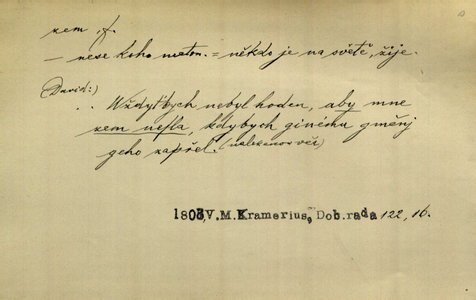 zem, f.
– nese koho meton. = někdo je na světě, žije.
(David:)
.. Wždyťbych nebyl hoden, aby mne
zem nesla, kdybych ginému gměnj
geho zapřel.
1808,V.M.Kramerius, Dob.rada 122, 16.